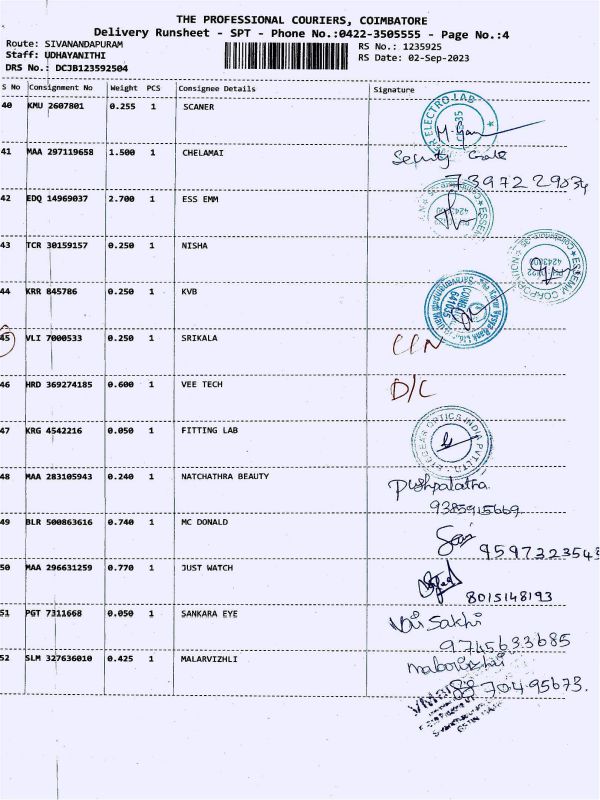 THE PROFESSIONAL COURIERS, COIMBATORE
Delivery Runsheet - SPT - Phone No.:0422-3505555 - Page No.:4
Route: SIVANANDAPURAM
RS No.: 1235925
Staff: UDHAYANITHI
RS Date: 02-Sep-2023
DRS No.: DCJB123592504
S No Consignment No Weight PCS Consignee Details Signature
40 KMU 2607801 0.255 1 SCANER
41 MAA 297119658 1.500 1 CHELAMAI
7397229034
42 EDQ 14969037 2.700 1 ESS EMM
43 TCR 30159157 0.250 1 NISHA
44 KRR 845786 0.250 1 KVB
45 VLI 7000533 0.250 1 SRIKALA
46 HRD 369274185 0.600 1 VEE TECH D/C
47 KRG 4542216 0.050 1 FITTING LAB
48 MAA 283105943 0.240 1 NATCHATHRA BEAUTY Pushpalatha
9385915669
49 BLR 500863616 0.740 1 MC DONALD
9597223548
50 MAA 296631259 0.770 1 JUST WATCH
8015148193
51 PGT 7311668 0.050 1 SANKARA EYE Sakhi
9745633685
52 SLM 327636010 0.425 1 MALARVIZHLI